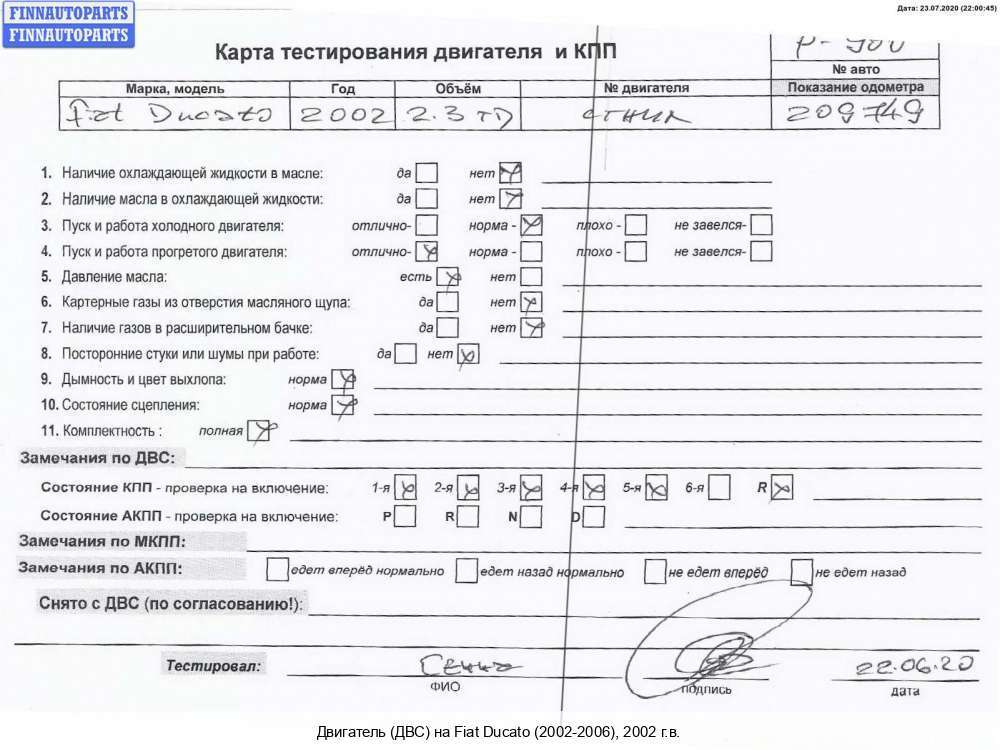 FINNAUTOPARTS
FINNAUTOPARTS
Дата: 23.07.2020 (22:00:45)
Карта тестирования двигателя и КПП
P- 900
№ авто
Марка, модель Год Объём № двигателя Показание одометра
Fiat Ducato 2002 2.3 TD 209749
1. Наличие охлаждающей жидкости в масле: да нет
2. Наличие масла в охлаждающей жидкости: да нет
3. Пуск и работа холодного двигателя: отлично- норма - плохо - не завелся-
4. Пуск и работа прогретого двигателя: отлично- норма - плохо - не завелся-
5. Давление масла: есть нет
6. Картерные газы из отверстия масляного щупа: да нет
7. Наличие газов в расширительном бачке: да нет
8. Посторонние стуки или шумы при работе: да нет
9. Дымность и цвет выхлопа: норма
10. Состояние сцепления: норма
11. Комплектность : полная
Замечания по ДВС:
Состояние КПП - проверка на включение: 1-я 2-я 3-я 4-я 5-я 6-я R
Состояние АКПП - проверка на включение: P R N D
Замечания по МКПП:
Замечания по АКПП: едет вперёд нормально едет назад нормально не едет вперёд не едет назад
Снято с ДВС (по согласованию!):
Тестировал: 22.06.20
ФИО подпись дата
Двигатель (ДВС) на Fiat Ducato (2002-2006), 2002 г.в.